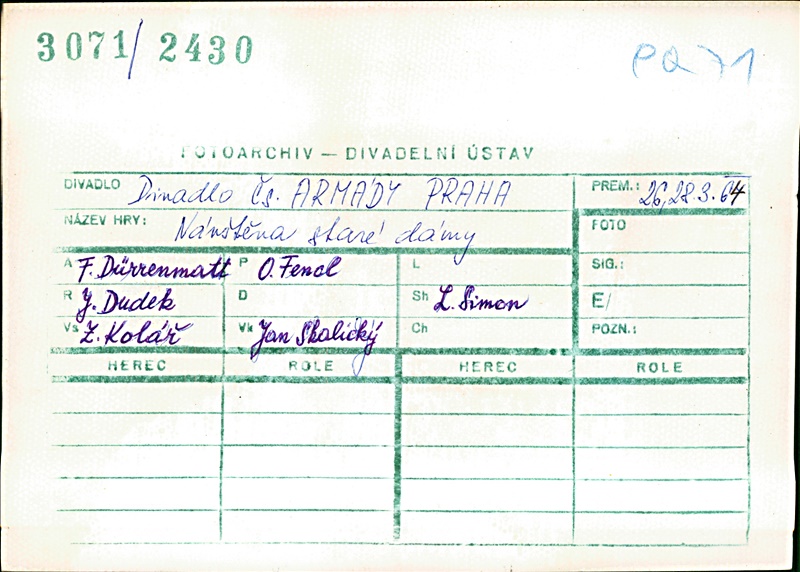 3071/2430
PQ 71
FOTOARCHIV — DIVADELNÍ ÚSTAV
DIVADLO Divadlo Čs. ARMÁDY PRAHA PREM.: 26,28.3.64
NÁZEV HRY: Návštěva staré dámy FOTO
A F. Dürrenmatt P O. Fencl L SIG.:
R J. Dudek D Sh L. Simon E/
Vs Z. Kolář Vk Jan Skalický Ch POZN.:
HEREC ROLE HEREC ROLE